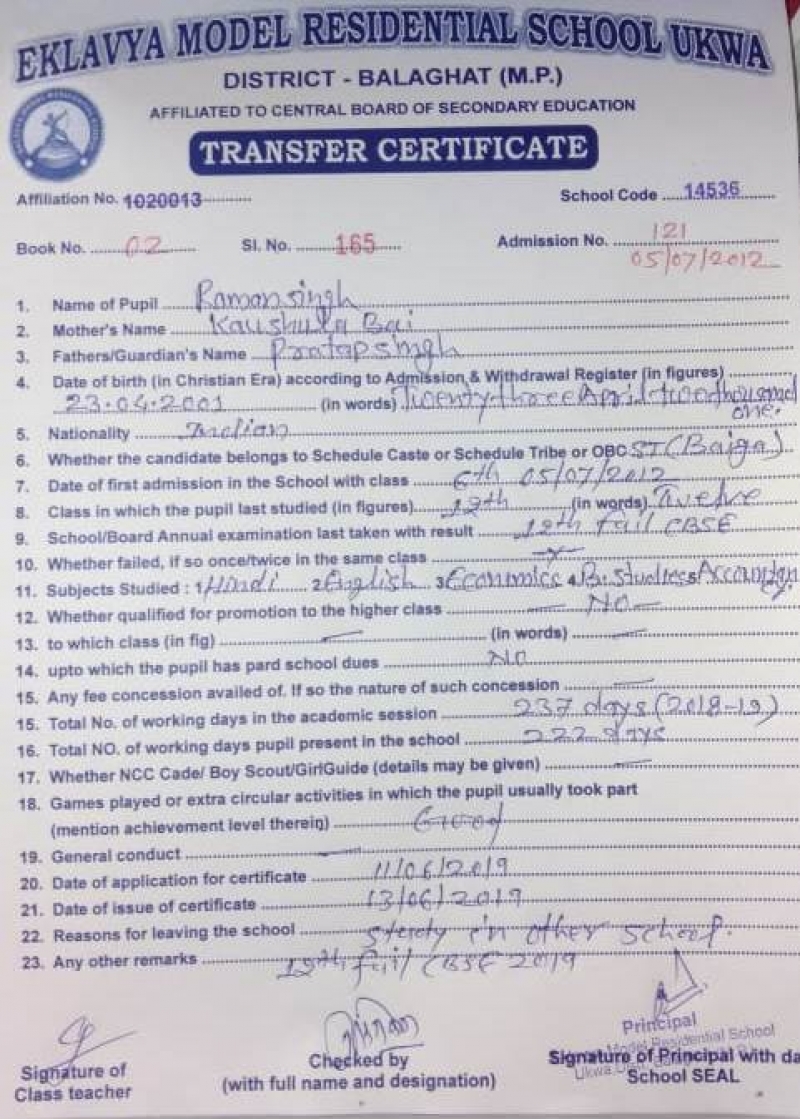 EKLAVYA MODEL RESIDENTIAL SCHOOL UKWA
DISTRICT - BALAGHAT (M.P.)
AFFILIATED TO CENTRAL BOARD OF SECONDARY EDUCATION
TRANSFER CERTIFICATE
Affiliation No. 1020013 School Code 14536
Book No. 02 Sl. No. 165 Admission No. 121
05/07/2012
1. Name of Pupil Ramansingh
2. Mother's Name Kaushula Bai
3. Fathers/Guardian's Name Pratapsingh
4. Date of birth (in Christian Era) according to Admission & Withdrawal Register (in figures)
23.04.2001 (in words) Twenty three April twothousand
one.
5. Nationality Indian
6. Whether the candidate belongs to Schedule Caste or Schedule Tribe or OBC ST (Baiga)
7. Date of first admission in the School with class 6th 05/07/2012
8. Class in which the pupil last studied (in figures) 12th (in words) Twelve
9. School/Board Annual examination last taken with result 12th fail CBSE
10. Whether failed, if so once/twice in the same class
11. Subjects Studied : 1 Hindi 2 English 3 Economics 4 B. Studies 5
12. Whether qualified for promotion to the higher class NO
13. to which class (in fig) (in words)
14. upto which the pupil has pard school dues NO
15. Any fee concession availed of. If so the nature of such concession
15. Total No. of working days in the academic session 237 days (2018-19)
16. Total NO. of working days pupil present in the school 222 days
17. Whether NCC Cade/ Boy Scout/GirlGuide (details may be given)
18. Games played or extra circular activities in which the pupil usually took part
(mention achievement level therein) Good
19. General conduct
20. Date of application for certificate 11/06/2019
21. Date of issue of certificate 13/06/2019
22. Reasons for leaving the school study in other school.
23. Any other remarks 12th fail CBSE 2019
Principal
Model Residential School
Signature of Checked by Signature of Principal with da
Class teacher (with full name and designation) School SEAL